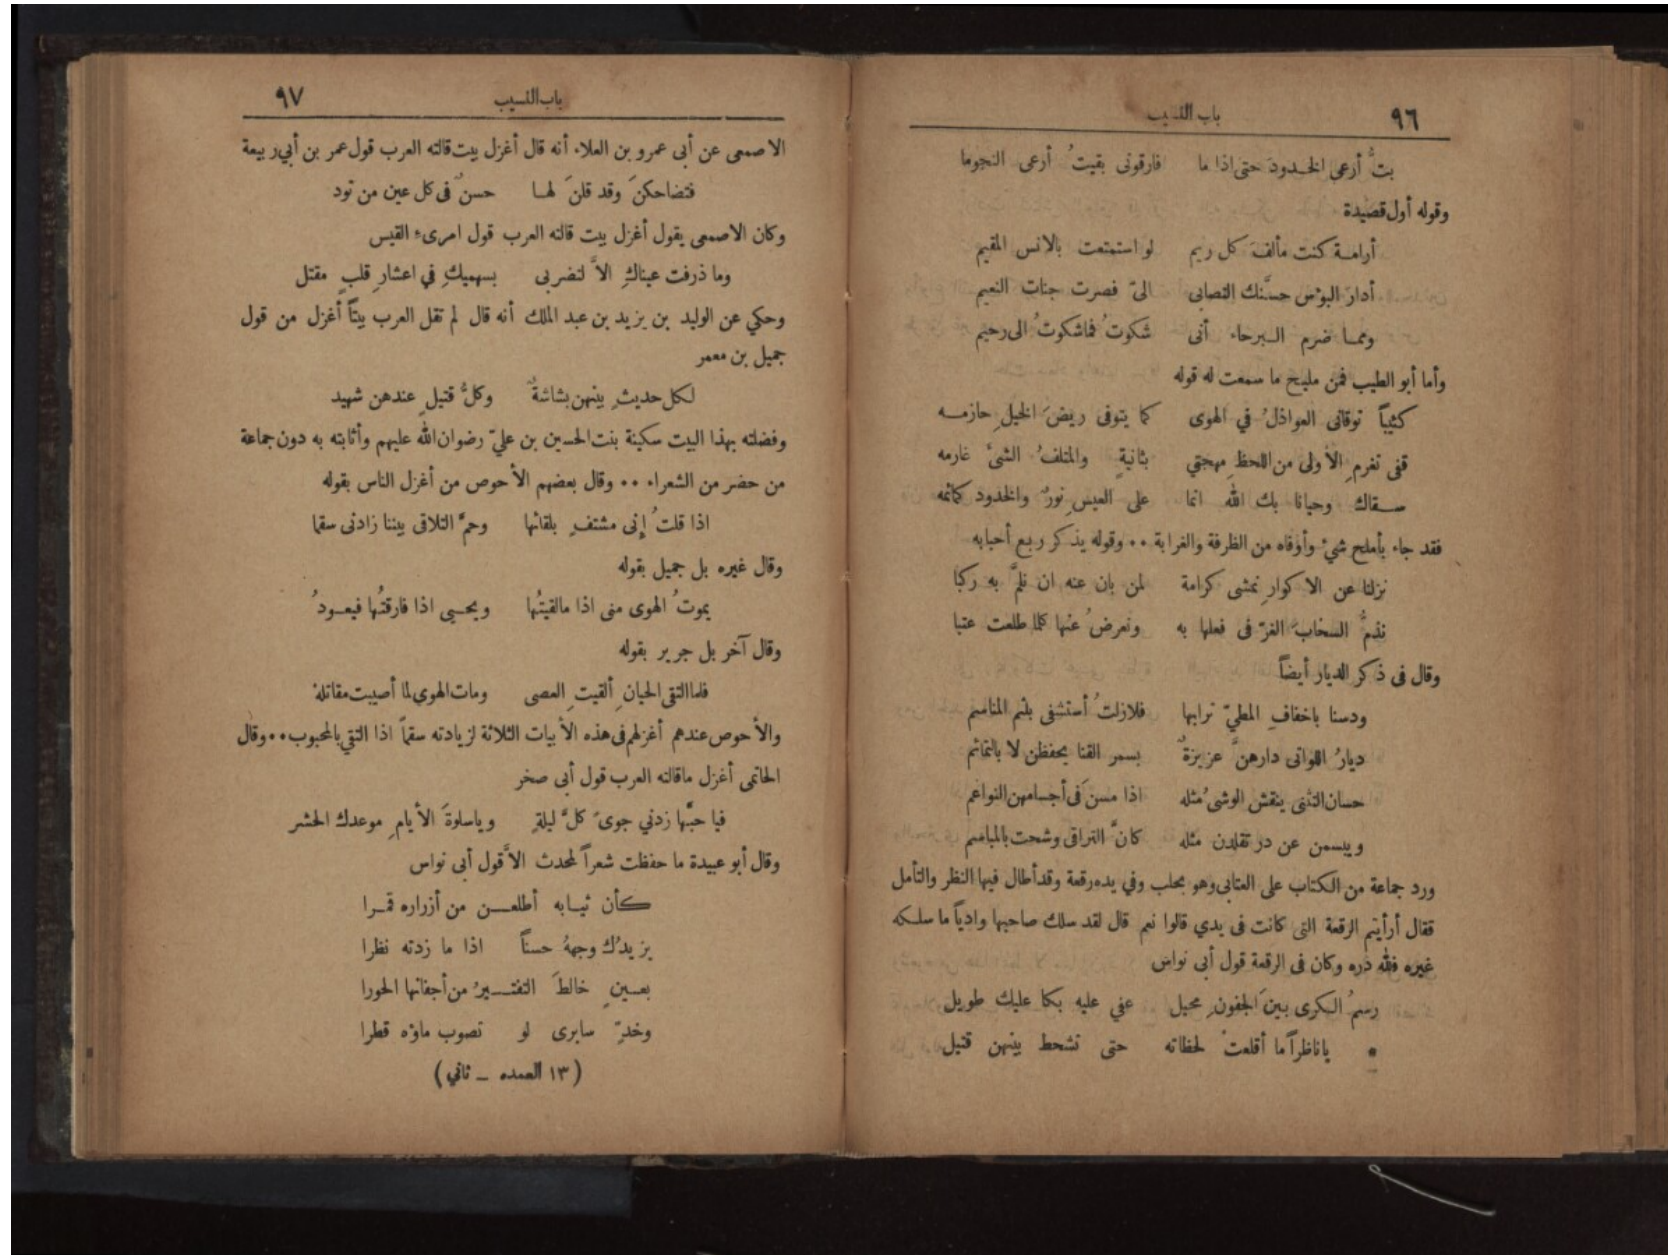 ٩٦ باب النسيب
بتُّ أرعى الخدودَ حتى اذا ما فارقونى بقيتُ أرعى النجوما
وقوله أول قصيدة
أرامة كنت مألفَ كل ريم لو استمتعت بالانس المقيم
أدار البؤس حسَّنك التصابى الىّ فصرت جنات النعيم
ومما ضرم البرحاء أنى شكوتُ فماشكوتُ الى رحيم
وأما أبو الطيب فمن مليح ما سمعت له قوله
كئيباً توقانى العواذلُ في الهوى كما يتوقى ريضَ الخيلِ حازمه
قفى تغرمِ الأولى من اللحظِ مهجتي بثانيةٍ والمتلفُ الشئَ غارمه
سقاك وحيانا بك الله انما على العيسِ نورٌ والخدود كمائمه
فقد جاء بأملح شئ وأوفاه من الظرفة والغرابة ٠٠ وقوله يذكر ربع أحبابه
نزلنا عن الاكوارِ نمشى كرامة لمن بان عنه ان نلمَّ به ركبا
نذمُّ السحابَ الغرّ فى فعلها به ونعرضُ عنها كلما طلعت عتبا
وقال فى ذكر الديار أيضاً
ودسنا باخفافِ المطيّ ترابها فلازلتُ أستشفى بلثم المناسم
ديارُ اللواتى دارهنَّ عزيزةٌ بسمر القنا يحفظن لا بالتمائم
حسان التثنى ينقش الوشىُ مثله اذا مسنَ فى أجسامهن النواعم
ويبسمن عن در تقلدن مثله كانَّ التراقى وشحت بالمباسم
ورد جماعة من الكتاب على العتابى وهو بحلب وفي يده رقعة وقد أطال فيها النظر والتأمل
فقال أرأيتم الرقعة التى كانت فى يدي قالوا نعم قال لقد سلك صاحبها وادياً ما سلكه
غيره فلله دره وكان فى الرقعة قول أبى نواس
رسمُ الكرى بين الجفونِ محيل عفي عليه بكا عليك طويل
* ياناظراً ما أقلعتْ لحظاته حتى تشحط بينهن قتيل
باب النسيب ٩٧
الاصمعى عن أبى عمرو بن العلاء أنه قال أغزل بيت قالته العرب قول عمر بن أبي ربيعة
فتضاحكنَ وقد قلنَ لها حسنٌ فى كل عين من تود
وكان الاصمعى يقول أغزل بيت قالته العرب قول امرىء القيس
وما ذرفت عيناكِ الاَّ لتضربى بسهميكِ في اعشارِ قلبٍ مقتل
وحكي عن الوليد بن يزيد بن عبد الملك أنه قال لم تقل العرب بيتاً أغزل من قول
جميل بن معمر
لكل حديثٍ بينهن بشاشةٌ وكلُّ قتيلٍ عندهن شهيد
وفضلته بهذا البيت سكينة بنت الحسين بن عليّ رضوان الله عليهم وأثابته به دون جماعة
من حضر من الشعراء ٠٠ وقال بعضهم الأحوص من أغزل الناس بقوله
اذا قلتُ إنى مشتفٍ بلقائها وحمَّ التلاقى بيننا زادنى سقما
وقال غيره بل جميل بقوله
يموتُ الهوى منى اذا مالقيتُها ويحيى اذا فارقتُها فيعودُ
وقال آخر بل جرير بقوله
فلما التقى الحيانِ ألقيتِ العصى ومات الهوى لما أصيبت مقاتلهْ
والأحوص عندهم أغزلهم فى هذه الأبيات الثلاثة لزيادته سقماً اذا التقي بالمحبوب ٠٠ وقال
الحاتمى أغزل ماقالته العرب قول أبى صخر
فيا حبَّها زدني جوىً كلَّ ليلةٍ وياسلوةَ الأيامِ موعدك الحشر
وقال أبو عبيدة ما حفظت شعراً لمحدث الاَّ قول أبى نواس
كأن ثيابه أطلعن من أزراره قمرا
يزيدُك وجههُ حسناً اذا ما زدته نظرا
بعينٍ خالطَ التفتيرُ من أجفانها الحورا
وخدٍّ سابرى لو تصوب ماؤه قطرا
(١٣ العمده ـ ثاني)